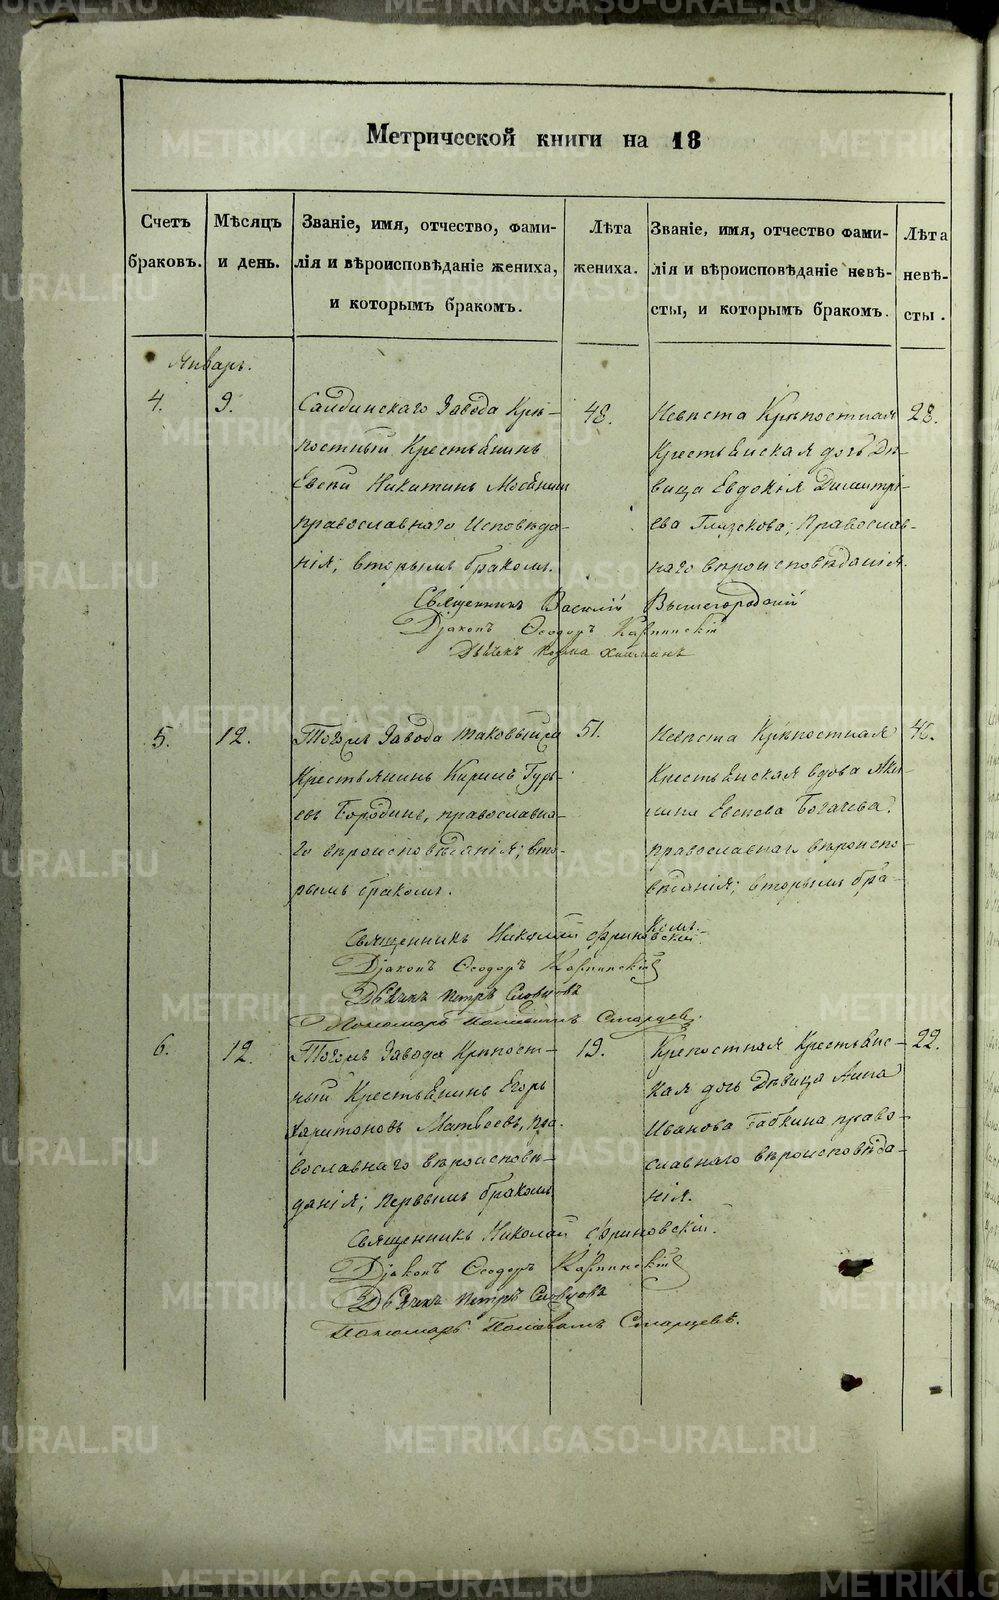 Метрической книги на 18
Счетъ браковъ.
Мѣсяцъ и день.
Званіе, имя, отчество, фами-
лія и вѣроисповѣданіе жениха,
и которымъ бракомъ.
Лѣта жениха.
Званіе, имя, отчество фами-
лія и вѣроисповѣданіе невѣ-
сты, и которымъ бракомъ.
Лѣта невѣ-
сты.
Январь.
4.
9.
Салдинскаго Завода Крѣ-
постный Крестьянинъ
Евсѣй Никитинъ
православнаго Исповѣда-
нія; вторымъ бракомъ.
48.
Невѣста Крѣпостная
Крестьянская дочь Дѣ-
вица Евдокія Димитрі-
ева Глазскова; Православ-
наго вѣроисповѣданія.
28.
Священникъ Василій Вышегородскій
Діаконъ Ѳеодоръ Карпинскій
Дьячекъ Козма
5.
12.
Тогожъ Завода таковый же
Крестьянинъ Кирилъ Гурь-
евъ Бородинъ, православна-
го вѣроисповѣданія; вто-
рымъ бракомъ.
51.
Невѣста Крѣпостная
Крестьянская вдова Аки-
лина Евсѣева Богачева.
православнаго вѣроиспо-
вѣданія; вторымъ бра-
комъ.
46.
Священникъ Николай Фриновскій.
Діаконъ Ѳеодоръ Карпинскій
Дьячекъ Петръ Словцовъ
Пономарь Старцевъ.
6.
12.
Тогожъ Завода Крѣпост-
ный Крестьянинъ Егоръ
Харитоновъ Матвеевъ, пра-
вославнаго вѣроисповѣ-
данія; первымъ бракомъ
19.
Крепостная Крестьянс-
кая дочь Дѣвица Анна
Иванова Бабкина право-
славнаго вѣроисповѣда-
нія.
22.
Священникъ Николай Фриновскій.
Діаконъ Ѳеодоръ Карпинскій
Дьячекъ Петръ Словцовъ
Пономарь Старцевъ.
METRIKI.GASO-URAL.RU